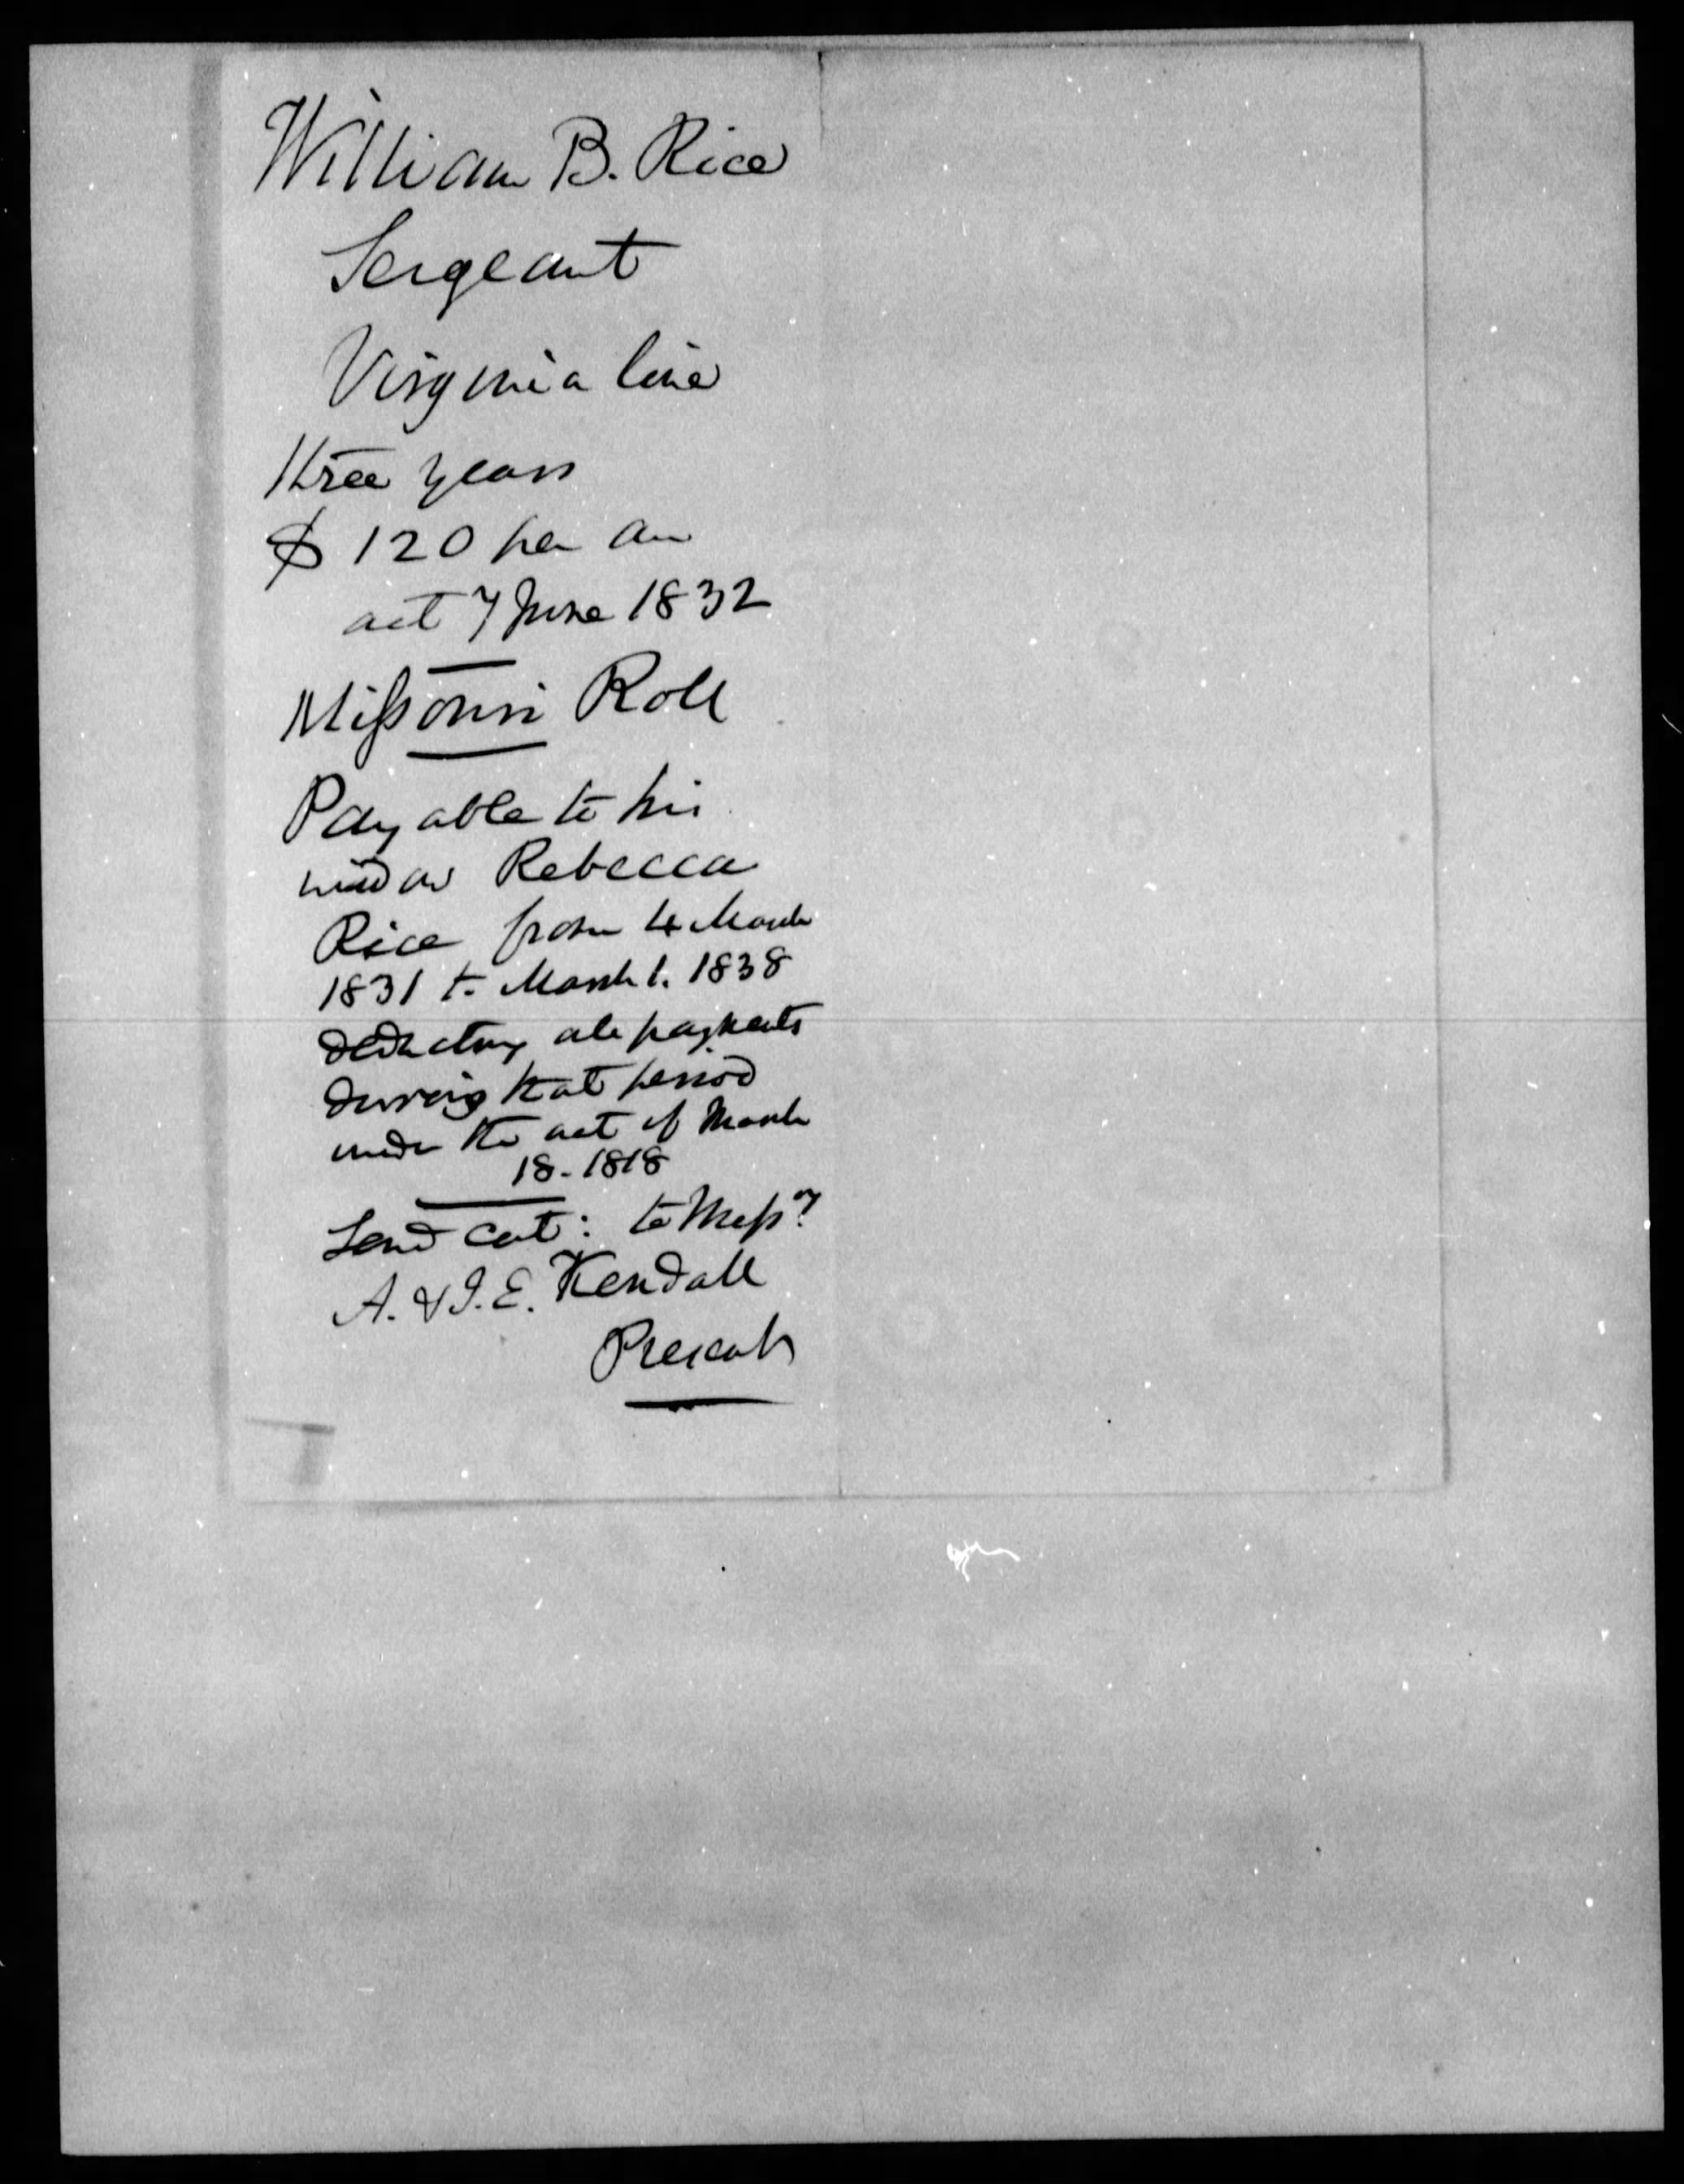 William B. Rice
Sergeant
Virginia line
three years
$ 120 per an
act 7 June 1832
Missouri Roll
Payable to his
widow Rebecca
Rice from 4 March
1831 to March 1. 1838
deducting all payments
during that period
under the act of March
18. 1818
Send cert: to Messrs
A. & J. E. Kendall
Present